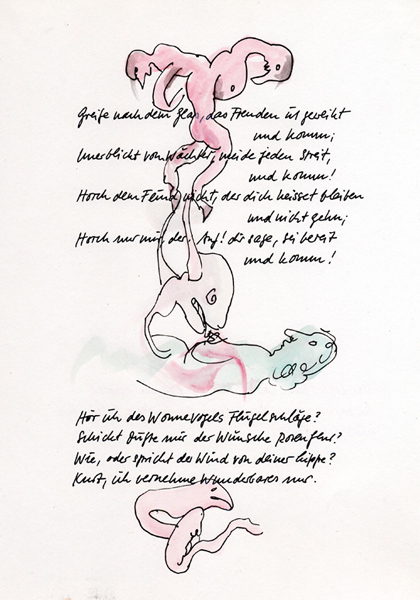 Greife nach dem Glas, das Freuden ist geweiht
und komm;
Unerblickt vom Wächter, meide jeden Streit,
und komm!
Horch dem Feind nicht, der dich heisset bleiben
und nicht gehn;
Horch nur mir, der: Auf! dir sage, sei bereit
und komm!
Hör ich des Wonnevogels Flügelschläge?
Schickt Düfte mir der Wünsche Rosenflur?
Wie, oder spricht der Wind von deiner Lippe?
Kurz, ich vernehme Wunderbares nur.